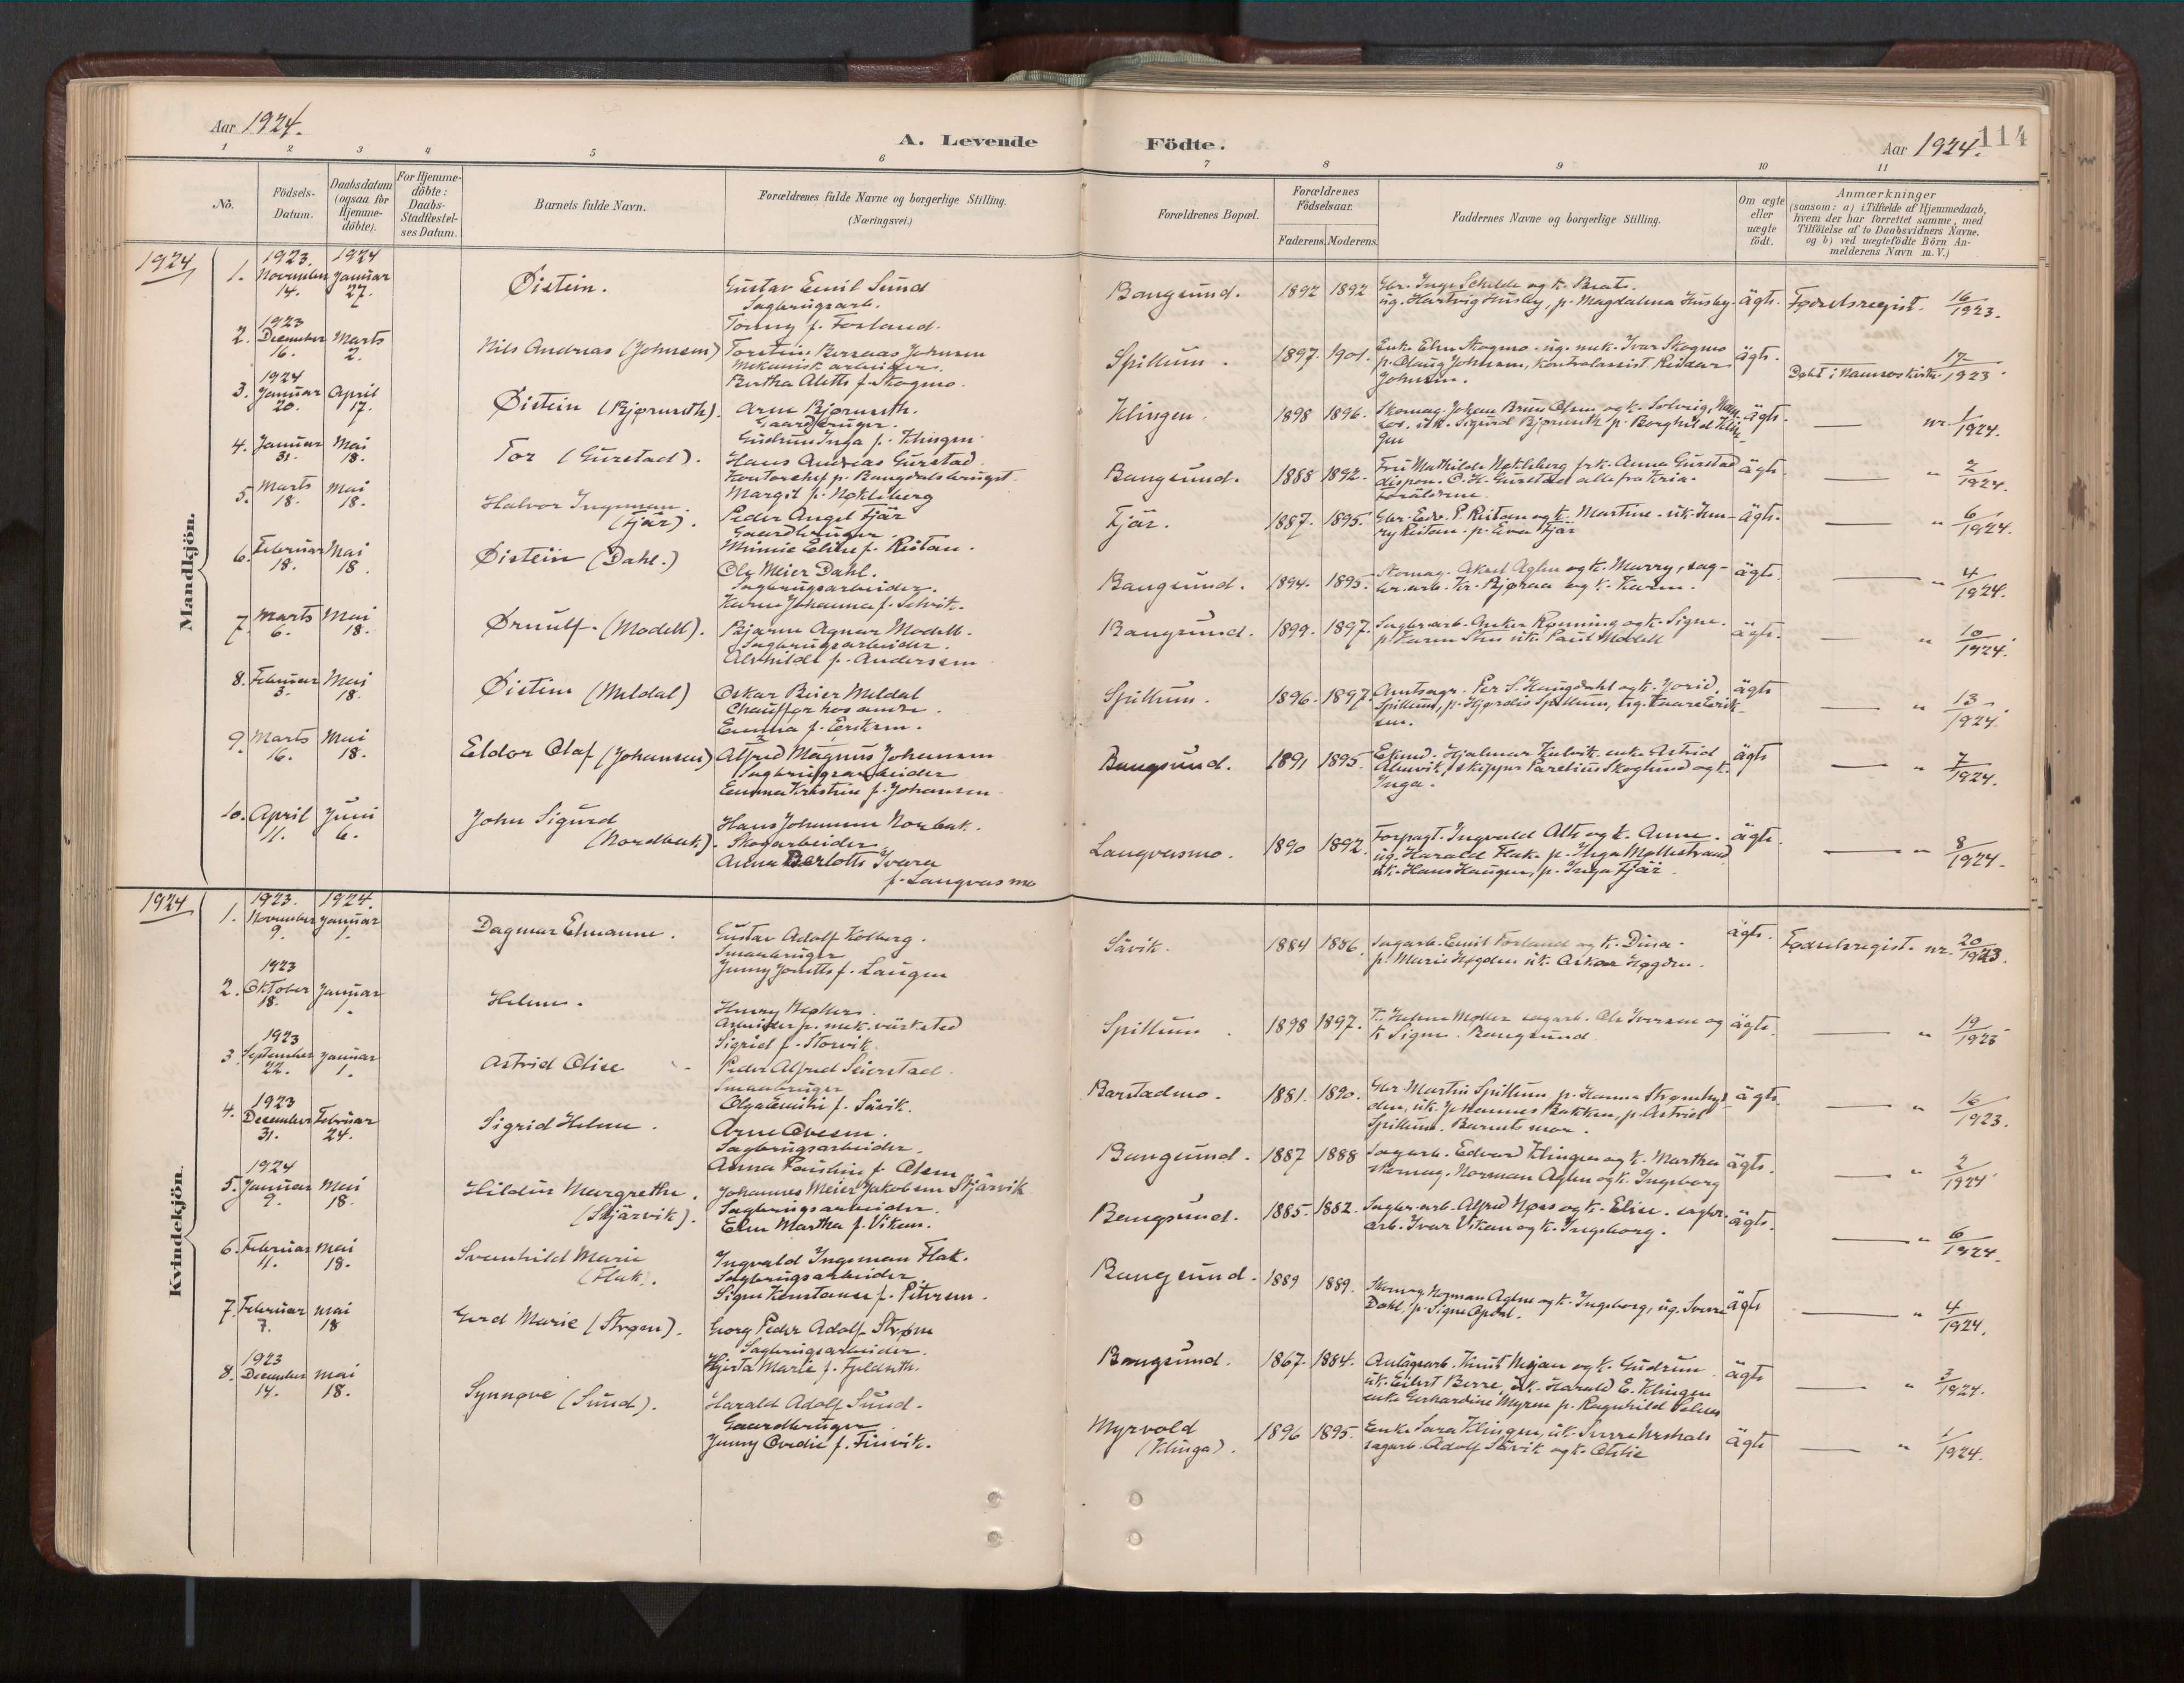 Aar 1924.
A. Levende
Födte.
Aar 1924.
114
1 2 3 4 5 6 7 8 9 10 11
No.
Födsels-
Datum.
Daabsdatum
(ogsaa for
Hjemme-
döbte).
For Hjemme-
döbte:
Daabs-
Stadfæstel-
ses Datum.
Barnets fulde Navn.
Forældrenes fulde Navne og borgerlige Stilling.
(Næringsvei.)
Forældrenes Bopæl.
Forældrenes
Födselsaar.
Faderens. Moderens.
Faddernes Navne og borgerlige Stilling.
Om ægte
eller
uægte
födt.
Anmærkninger
(saasom: a) i Tilfælde af Hjemmedaab,
hvem der har forrettet samme, med
Tilföielse af to Daabsvidners Navne.
og b) ved uægtefödte Börn An-
melderens Navn m.V.)
Mandkjön.
1924
1. 1923. November 14. 1924 Januar 27. Øistein.
Gustav Emil Sund
Sagbrugsarb.
Tonny f. Forland.
Bangsund. 1892 1892
ug. Hartvig Husby, p. Magdalena Husby. ägte. Fødselsregist. 16/1923.
2. 1923 December 16. Marts 2. Nils Andreas (Johnsen)
Torstein Johnsen
Mekanisk arbeider.
Bertha Aletto f. Skogmo.
Spillum. 1897. 1901.
Enke Elen Skogmo. ug. mek. Ivar Skogmo
p. Olaug Johnsen, Kontorassist. Reidar
Johnsen.
ägte. 17/1923.
Døbt i Namsos Kirke.
3. 1924 Januar 20. April 17. Øistein (Bjørnseth).
Arne Bjørnseth.
Gaardbruger.
Gudrun Inga f. Klingen.
Klingen. 1898 1896.
Skomag. Johan Bruu Olsen og k. Solveig, Nam-
sos. uk. Sigurd Bjørnseth p. Borghild Klin-
gen
ägte. nr. 1/1924.
4. Januar 31. Mai 18. Tor (Gurstad).
Hans Andreas Gurstad
Kontorchef p. Bangdalsbruget.
Margit f. Nøkleberg
Bangsund. 1888 1892.
Fru Mathilde Nøkleberg frk. Anna Gurstad
dispon. O. H. Gurstad alle fra Kria.
Forældrene.
ägte. " 2/1924.
5. Marts 18. Mai 18. Halvor Ingeman.
(Fjär).
Peder Angel Fjär
Gaardbruger.
Minnie Eline f. Reitan.
Fjär. 1887. 1895.
Gbr. Edv. P. Reitan og k. Martine. uk. Hen-
ry Reitan. p. Eva Fjär
ägte. " 6/1924.
6. Februar 18. Mai 18. Øistein (Dahl.)
Ole Meier Dahl.
Sagbrugsarbeider.
Karen Johanna f. Selvik.
Bangsund. 1894. 1895.
Skomag. Aksel Aglen og k. Marry, sag-
br.arb. Kr. Bjøraa og k. Karen.
ägte. " 4/1924.
7. Marts 6. Mai 18. Ørnulf. (Modell).
Bjarne Agnar Modell.
Sagbrugsarbeider.
Alvhilde f. Andersen
Bangsund. 1899. 1897.
Sagbr.arb. Anker Rønning og k. Signe.
uk. Paul Modell
ägte. " 10/1924.
8. Februar 3. Mai 18. Øistein (Meldal)
Oskar Meldal
Chauffør hos andre.
Emma f. Eriksen.
Spillum. 1896. 1897.
Amtsagr. Per S. Haugdahl og k. Jorid,
Spillum, p. Hjørdis Spillum, ug. Kaare Erik-
sen.
ägte " 13/1924.
9. Marts 16. Mai 18. Eldor Olaf (Johansen)
Alfred Magnus Johansen
Sagbrugsarbeider
Emma Kristine f. Johansen.
Bangsund. 1891 1895.
Hjalmar Kulvik. enke Astrid
Almvik, skipper Parelius Skoglund og k.
Inga.
ägte " 7/1924.
10. April 11. Juni 6. John Sigurd
(Nordbak).
Hans Johannes Norbak.
Skogarbeider
Anna Berlotte Ivara
f. Langvasmo
Langvasmo. 1890 1892.
Forpagt. Ingvald Alte og k. Anne.
ug. Harald Flak. p. Inga Møllestrand
uk. Hans Haugen, p. Inga Fjär.
ägte. " 8/1924.
Kvindekjön.
1924
1. 1923. November 9. 1924. Januar 1. Dagmar Elmanne.
Gustav Adolf Kolberg.
Smaabruger
Jenny Jonette f. Laugen
Sävik. 1884 1886.
Sagarb. Emil Forland og k. Dina.
p. Marie Høgden uk. Oskar Høgden.
ägte. Fødselsregist. nr. 20/1923.
2. 1923 Oktober 18. Januar 1. Helene.
Henry Møller.
Arbeider p. mek. värksted
Sigrid f. Storvik.
Spillum 1898 1897.
K. Helene Møller sagarb. Ole Iversen og
k Signe. Bangsund.
ägte. " 19/1923
3. 1923 September 22. Januar 1. Astrid Olise
Peder Alfred Seierstad.
Smaabruger
Olga Emilie f. Sävik.
Barstadmo. 1881. 1890.
Gbr. Martin Spillum p. Hanna Strømhyl-
den, uk. Johannes Bakken, p. Astrid
Spillum. Barnets mor.
ägte. " 16/1923.
4. 1923 December 31. Februar 24. Sigrid Helene.
Arne Ovesen.
Sagbrugsarbeider.
Anna Pauline f. Olsen
Bangsund. 1887 1888
Sagarb. Edvard Klingen og k. Martha
skomag. Norman Aglen og k. Ingeborg
ägte. " 2/1924.
5. 1924 Januar 9. Mai 18. Hildur Margrethe.
(Skjärvik).
Johannes Meier Jakobsen Skjärvik
Sagbrugsarbeider.
Elen Martha f. Viken.
Bangsund. 1885. 1882.
Sagbr.arb. Alfred Høss og k. Elise. sagbr.
arb. Ivar Vikan og k. Ingeborg.
ägte. " 6/1924.
6. Februar 11. Mai 18. Svanhild Marie
(Flak).
Ingvald Ingeman Flak.
Sagbrugsarbeider.
Signe Konstanse f. Petersen.
Bangsund. 1889 1889.
Skomag Norman Aglen og k. Ingeborg, ug. Sverre
Dahl, p. Signe Opdal.
ägte " 4/1924.
7. Februar 7. mai 18 Gerd Marie (Strøm).
Georg Peder Adolf Strøm
Sagbrugsarbeider.
Hjerta Marie f. Fyldseth.
Bangsund. 1867. 1884.
Anlägsarb. Knut Mojan og k. Gudrun
uk. Eilert Berre, uk. Harald E. Klingen
enke Gerhardine Myren p. Ragnhild Selnes
ägte " 3/1924.
8. 1923 December 14. mai 18. Synnøve (Sund).
Harald Adolf Sund.
Gaardbruger
Jenny Ovedie f. Finvik.
Myrvold
(Klinga). 1896 1895.
Enke Sara Klingen, uk.
sagarb. Adolf Sävik og k. Otilie
ägte " 1/1924.